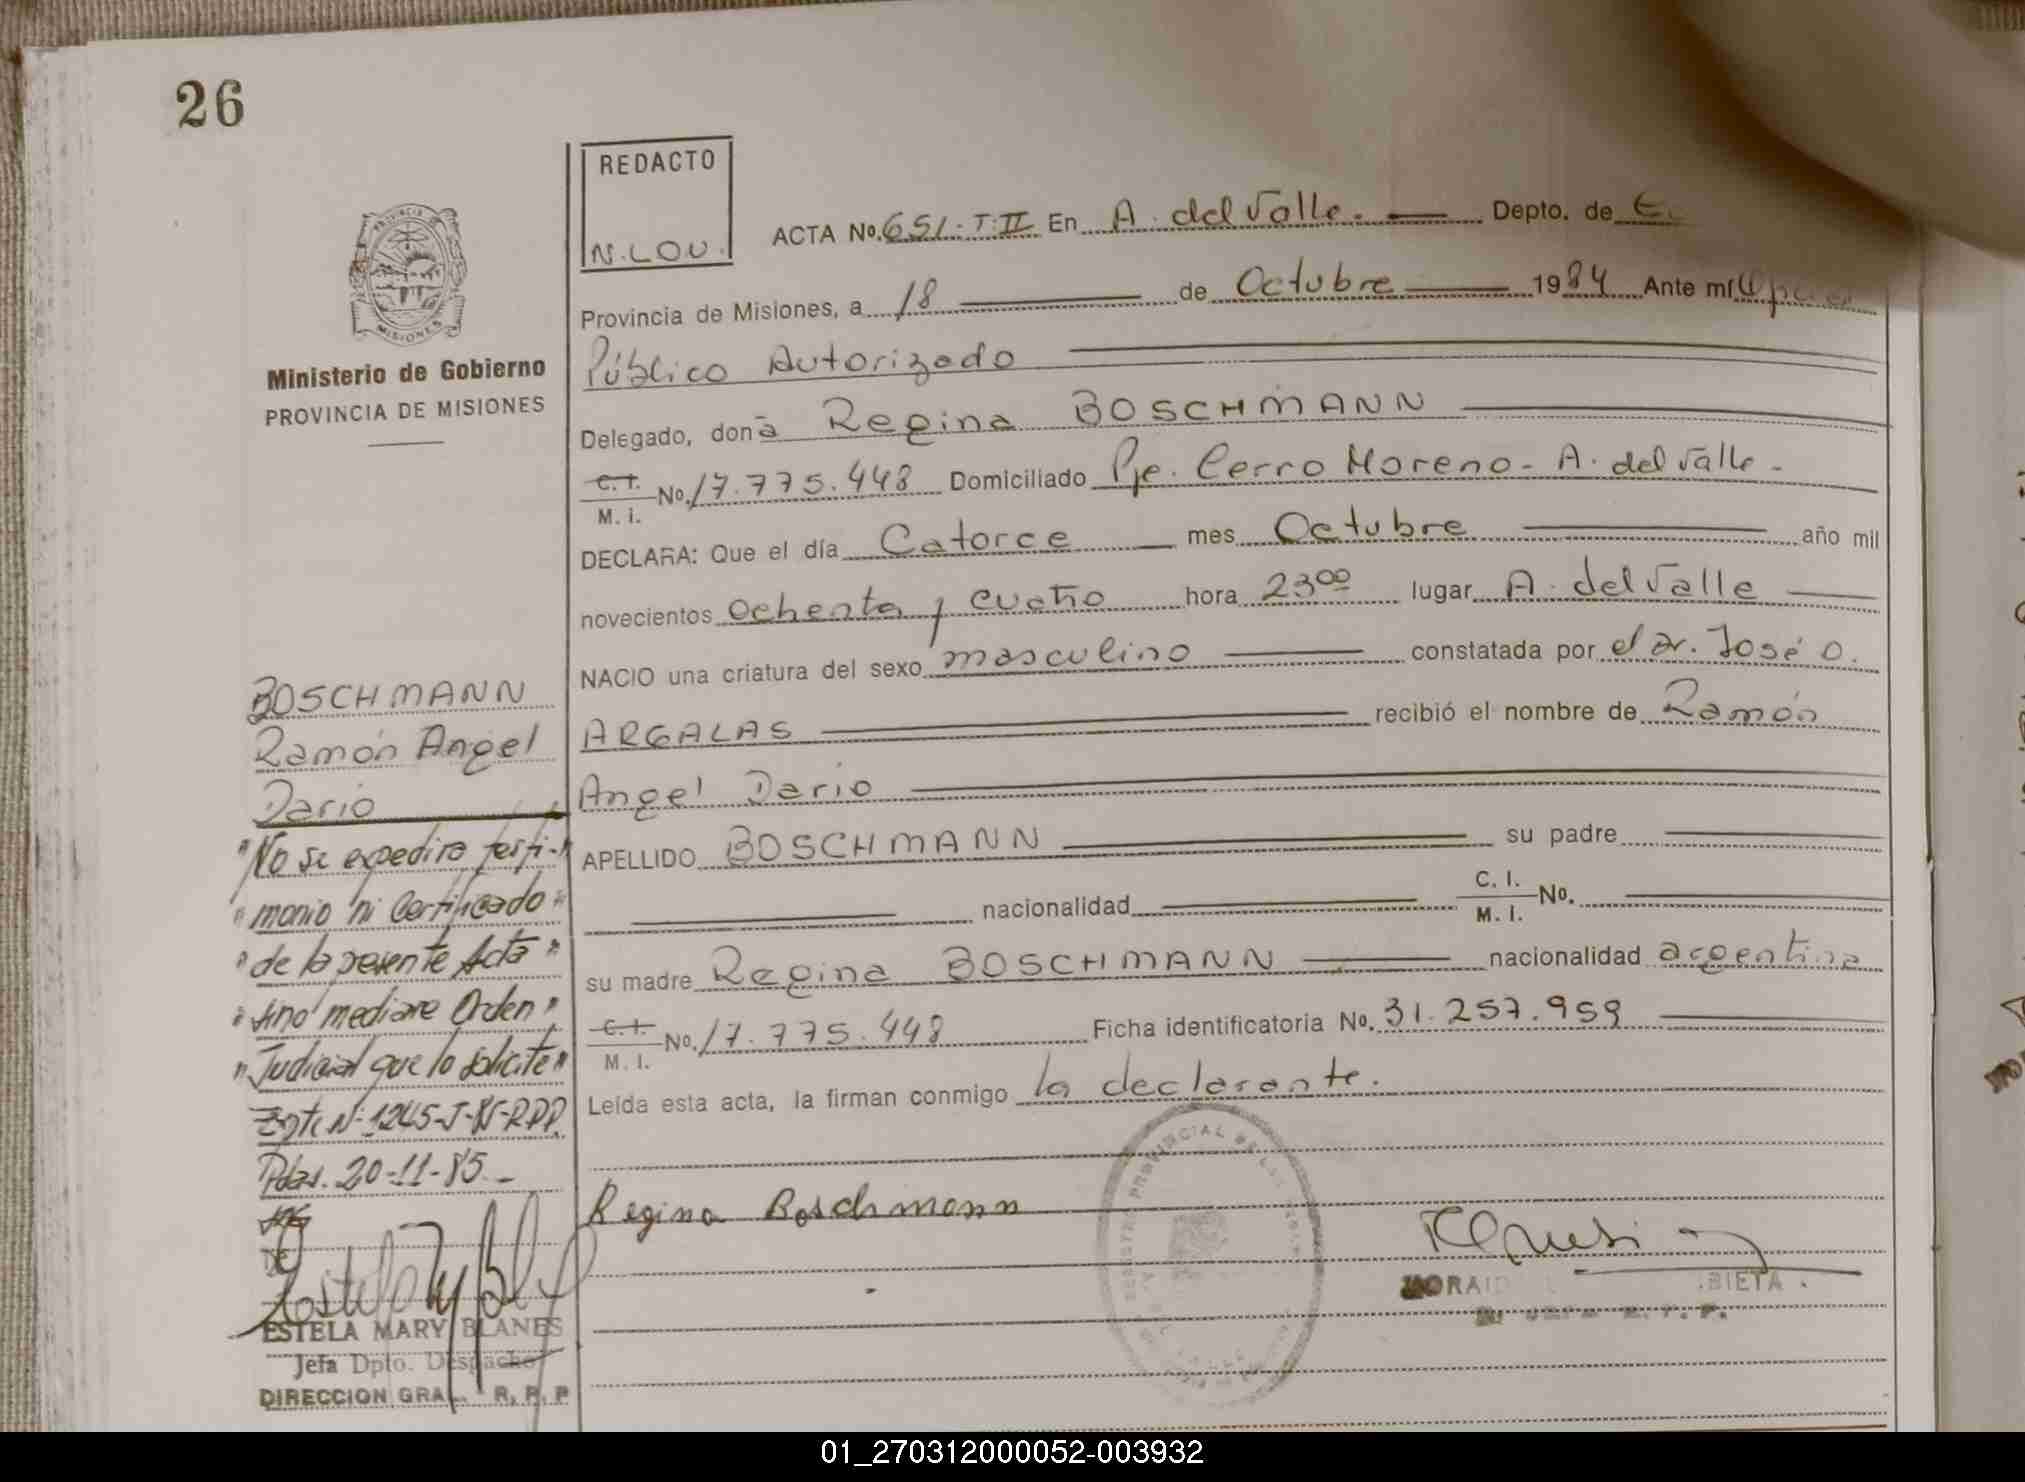 26
REDACTO
N.LOU.
ACTA No. 651-T:II En A. del Valle. Depto. de
Provincia de Misiones, a 18 de Octubre 1984 Ante mí
Público Autorizado
Delegado, doña Regina BOSCHMANN
C.I. M. I. No. 17.775.448 Domiciliado Pje. Cerro Moreno - A. del Valle -
DECLARA: Que el día Catorce mes Octubre año mil
novecientos ochenta y cuatro hora 23ºº lugar A. del Valle
NACIO una criatura del sexo masculino constatada por el Dr. José O.
ARGALAS recibió el nombre de Ramón
Angel Dario
APELLIDO BOSCHMANN su padre
nacionalidad C. I. M. I. No.
su madre Regina BOSCHMANN nacionalidad argentina
C.I. M. I. No. 17.775.448 Ficha identificatoria No. 31.257.959
Leída esta acta, la firman conmigo la declarante.
Regina Boschmann
PROVINCIA DE
MISIONES
Ministerio de Gobierno
PROVINCIA DE MISIONES
BOSCHMANN
Ramón Angel
Dario
"No se expedira testi-"
"monio ni Certificado"
"de la presente Acta"
"sino mediare Orden"
"Judicial que lo solicite"
Expte Nº 1245-J-85-RPP.
Pdas. 20-11-85.-
ESTELA MARY BLANES
Jefa Dpto. Despacho
DIRECCION GRAL. R. P. P
01_270312000052-003932